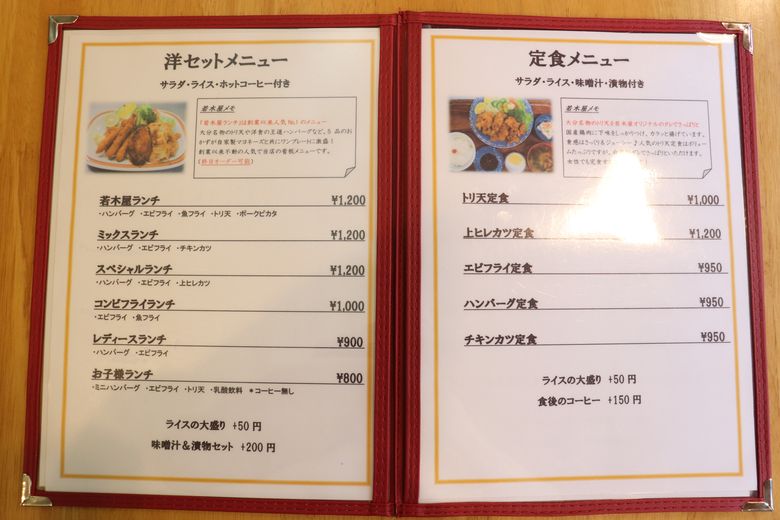 洋セットメニュー
サラダ・ライス・ホットコーヒー付き
若木屋メモ
「若木屋ランチ」は創業以来人気No.1のメニュー
大分名物のトリ天や洋食の王道ハンバーグなど、5品のお
かずが自家製マヨネーズと共にワンプレートに激盛！
創業以来不動の人気で当店の看板メニューです。
(終日オーダー可能)
若木屋ランチ ¥1,200
・ハンバーグ ・エビフライ ・魚フライ ・トリ天 ・ポークピカタ
ミックスランチ ¥1,200
・ハンバーグ ・エビフライ ・チキンカツ
スペシャルランチ ¥1,200
・ハンバーグ ・エビフライ ・上ヒレカツ
コンビフライランチ ¥1,000
・エビフライ ・魚フライ
レディースランチ ¥900
・ハンバーグ ・エビフライ
お子様ランチ ¥800
・ミニハンバーグ ・エビフライ ・トリ天 ・乳酸飲料 *コーヒー無し
ライスの大盛り +50 円
味噌汁＆漬物セット +200 円
定食メニュー
サラダ・ライス・味噌汁・漬物付き
若木屋メモ
大分名物のトリ天を若木屋オリジナルのタレでさっぱりと
国産鶏肉に下味をしっかりつけ、カラッと揚げています。
食感はさっくり＆ジューシー♪人気のトリ天定食はボリュー
ムたっぷりですが、
でさっぱりといただけます。
女性でも完食す
トリ天定食 ¥1,000
上ヒレカツ定食 ¥1,200
エビフライ定食 ¥950
ハンバーグ定食 ¥950
チキンカツ定食 ¥950
ライスの大盛り +50 円
食後のコーヒー +150 円